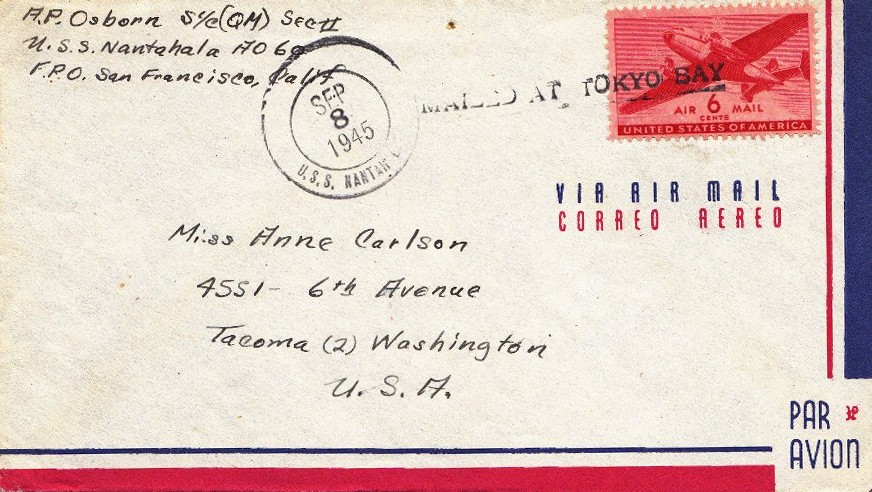 A.P. Osborn S1/c(QM) Sec II
U.S.S. Nantahala AO 60
F.P.O. San Francisco, Calif
SEP
8
1945
U.S.S. NANTAH
MAILED AT TOKYO BAY
AIR 6 MAIL
CENTS
UNITED STATES OF AMERICA
VIA AIR MAIL
CORREO AEREO
Miss Anne Carlson
4551- 6th Avenue
Tacoma (2) Washington
U.S.A.
PAR
AVION